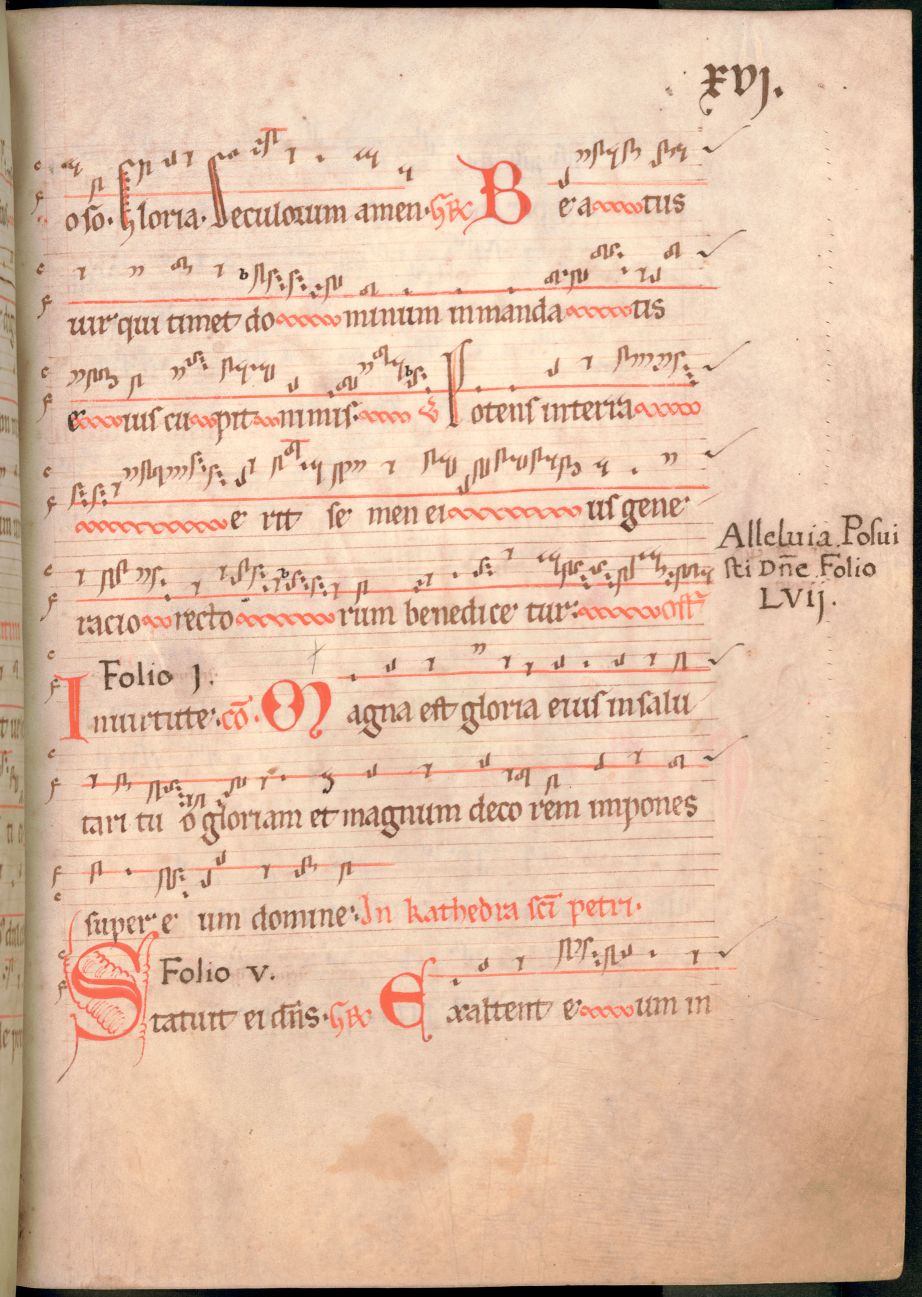 xvj.
oso. Gloria. Seculorum amen. GR Be a tus
uir qui timet do minum in manda tis
e ius cu pit nimis. V Potens in terra
e rit se men ei us gene
racio recto rum benedice tur. off
Alleluia. Posui
sti Dn̄e Folio
LVij.
Folio j.
In uirtute. cō. Magna est gloria eius in salu
tari tu o gloriam et magnum deco rem impones
super e um domine. In kathedra sc̄i petri.
Folio v.
Statuit ei dn̄s. GR Exaltent e um in